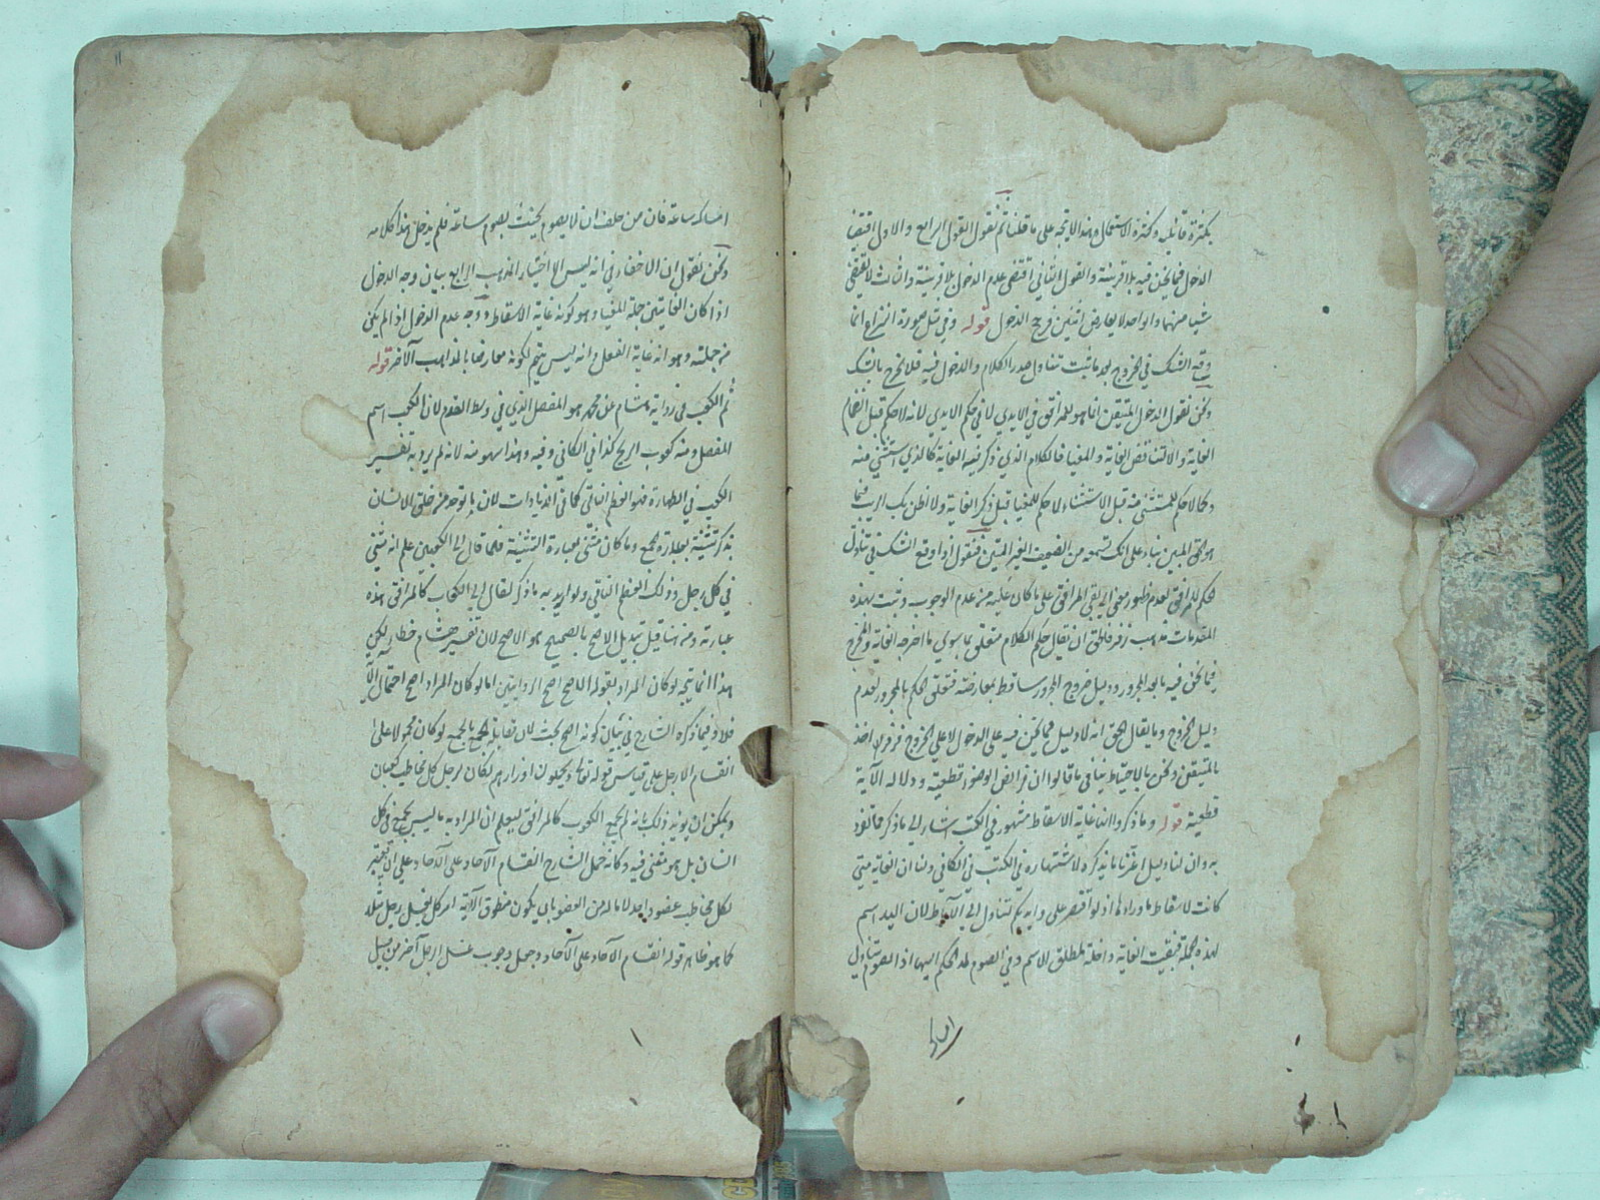 بكثرة قائليه وكثرة الاستعمال وهذا لا يتجه على ما قلنا ثم نقول القول الرابع والاول اقتضيا
الدخول فيما نحن فيه بلا قرينة والقول الثاني اقتضى عدم الدخول بلا قرينة والثالث لا يقتضي
شيئا منهما والواحد لا يعارض اثنين فرجح الدخول قوله وفي مثل صورة النزاع انما
وقع الشك في الخروج بعد ما ثبت تناول صدر الكلام والدخول فيه فلا يخرج بالشك
ونحن نقول الدخول المتيقن انما هو للمرافق في الايدي لا في حكم الايدي لانه لا حكم قبل انضمام
الغاية والا لتناقض الغاية والمغيا فالكلام الذي ذكر فيه الغاية كالذي استثني منه
وكما لا حكم للمستثنى منه قبل الاستثناء لا حكم للمغيا قبل ذكر الغاية ولا اظن بك الريب فيما
هو الحق المبين بناء على انك تسمعه من الضعيف الغير المتين فنقول اذا وقع الشك في تناول
الحكم للمرافق لعدم ظهور معنى الى بقي المرافق على ما كان عليه من عدم الوجوب وثبت بهذه
المقدمات مذهب زفر فالحق ان يقال حكم الكلام متعلق بما سوى ما اخرجه الغاية والمخرج
فيما نحن فيه ما بعد المجرور ودليل خروج المجرور ساقط بمعارضته فتعلق الحكم بالمجرور لعدم
دليل الخروج وما يقال الحق انه لا دليل فيما نحن فيه على الدخول ولا على الخروج فزفر اخذ
بالمتيقن ونحن بالاحتياط ينافي ما قالوا ان فرائض الوضوء قطعية ودلالة الآية
قطعية قوله وما ذكروا انها غاية الاسقاط مشهور في الكتب اشار الى ما ذكر
به وان لنا دليل آخر ما لم يذكره لاشتهاره في الكتب في الكافي ولنا ان الغاية متى
كانت لاسقاط ما وراءها اذ لو اقتصر على وايديكم لتناول الى الآباط لان اليد اسم
لهذه الجملة فبقيت الغاية داخلة بمطلق الاسم وفي الصوم لمد الحكم اليها اذ الصوم يتناول
امساك
امساك ساعة فان من حلف ان لا يصوم يحنث بصوم ساعة فلم يدخل هذا كلامه
ونحن نقول ان لا خفاء في انه ليس الاختيار المذهب الرابع بيان وجه الدخول
اذا كان الغاية من جملة المغيا وهو كونه غاية الاسقاط ووجه عدم الدخول اذا لم يكن
من جملته وهو انه غاية الفعل وانه ليس يتم لكونه معارضا بالمذاهب الآخر قوله
ثم الكعب في رواية هشام عن محمد هو المفصل الذي في وسط القدم لان الكعب اسم
المفصل ومنه كعوب الرمح كذا في الكافي وفيه وهذا سهو منه لانه لم يرد به تفسير
الكعب في الطهارة فهو العظم الناتي كما في الزيادات لان ما توحد من خلق الانسان
يذكر تثنيته بعبارة الجمع وما كان مثنى بعبارة التثنية فلما قال الى الكعبين علم انه مثنى
في كل رجل وذلك العظم الناتي ولو اريد به ما ذكر لقال الى الكعاب كالمرافق هذه
عبارته ومن هنا قيل تبديل الاصح بالصحيح هو الاصح لان تفسير هشام خطأ لكن
هذا انما يتجه لو كان المراد بقوله الاصح اصح الروايتين اما لو كان المراد اصح احتمالي الآية
فلا وفيما ذكره الشارح في بيان كونه اصح بحث لان مقابلة الجمع بالجمع لو كان محمولا على
انقسام الارجل على قياس قوله تعالى ويحملون اوزارهم لكان لرجل كل مخاطب كعبان
ويمكن ان يؤيد ذلك بانه لم يجمع الكعوب كالمرافق ليعلم ان المراد به ما ليس بجمع في كل
انسان بل هو مثنى فيه وكأنه حمل الشارح انقسام الآحاد على الآحاد على ان يعتبر
لكل مخاطب عضو واحد لا ما له من العضو بان يكون منطوق الآية امر كل بغسل رجل مثلا
كما هو ظاهر قوله انقسام الآحاد على الآحاد وجعل وجوب غسل الرجل آخر من قبيل